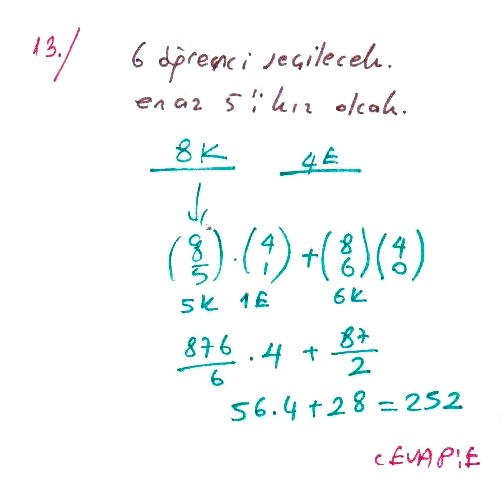 13./ 6 öğrenci seçilecek.
en az 5'i kız olcak.
8K 4E
(8 5) . (4 1) + (8 6)(4 0)
5K 1E 6K
876/6 . 4 + 87/2
56.4+28=252
CEVAP:E